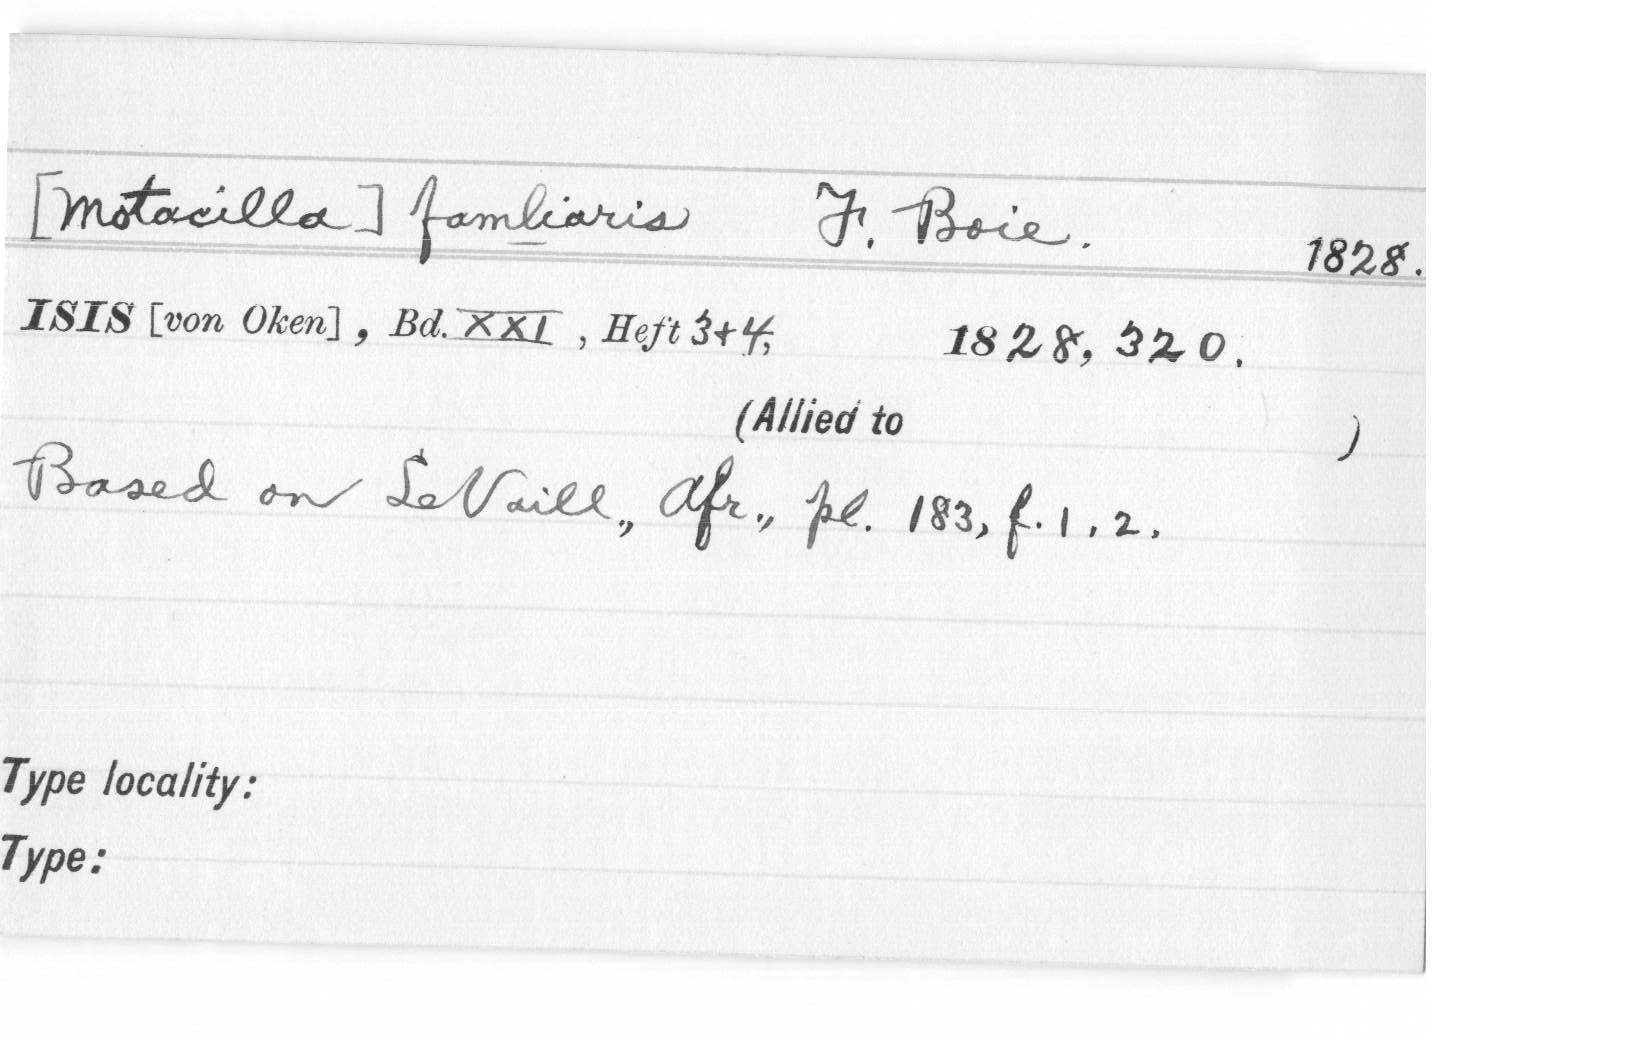 [Motacilla] famliaris F. Boie. 1828.
ISIS [von Oken], Bd. XXI, Heft 3+4, 1828, 320.
(Allied to )
Based on LeVaill., Afr., pl. 183, f. 1, 2.
Type locality:
Type: